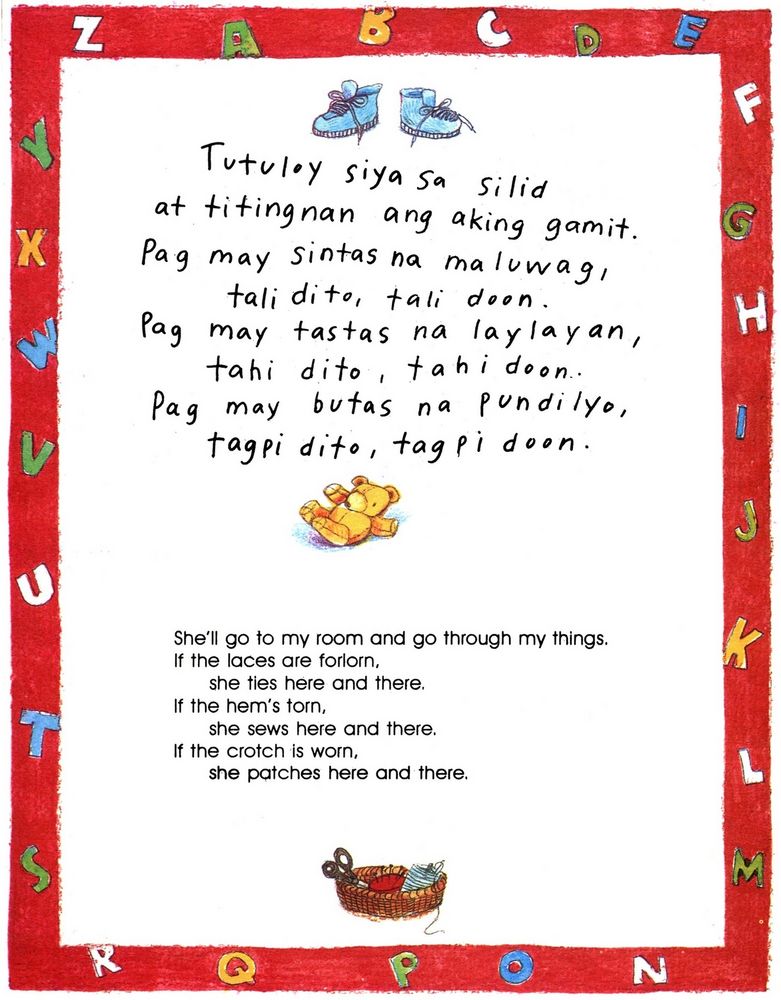 Z A B C D E
F
G
H
I
J
K
L
M
N
O
P
Q
R
S
T
U
V
W
X
Y
Tutuloy siya sa silid
at titingnan ang aking gamit.
Pag may sintas na maluwag,
tali dito, tali doon.
Pag may tastas na laylayan,
tahi dito, tahi doon.
Pag may butas na pundilyo,
tagpi dito, tagpi doon.
She'll go to my room and go through my things.
If the laces are forlorn,
she ties here and there.
If the hem's torn,
she sews here and there.
If the crotch is worn,
she patches here and there.